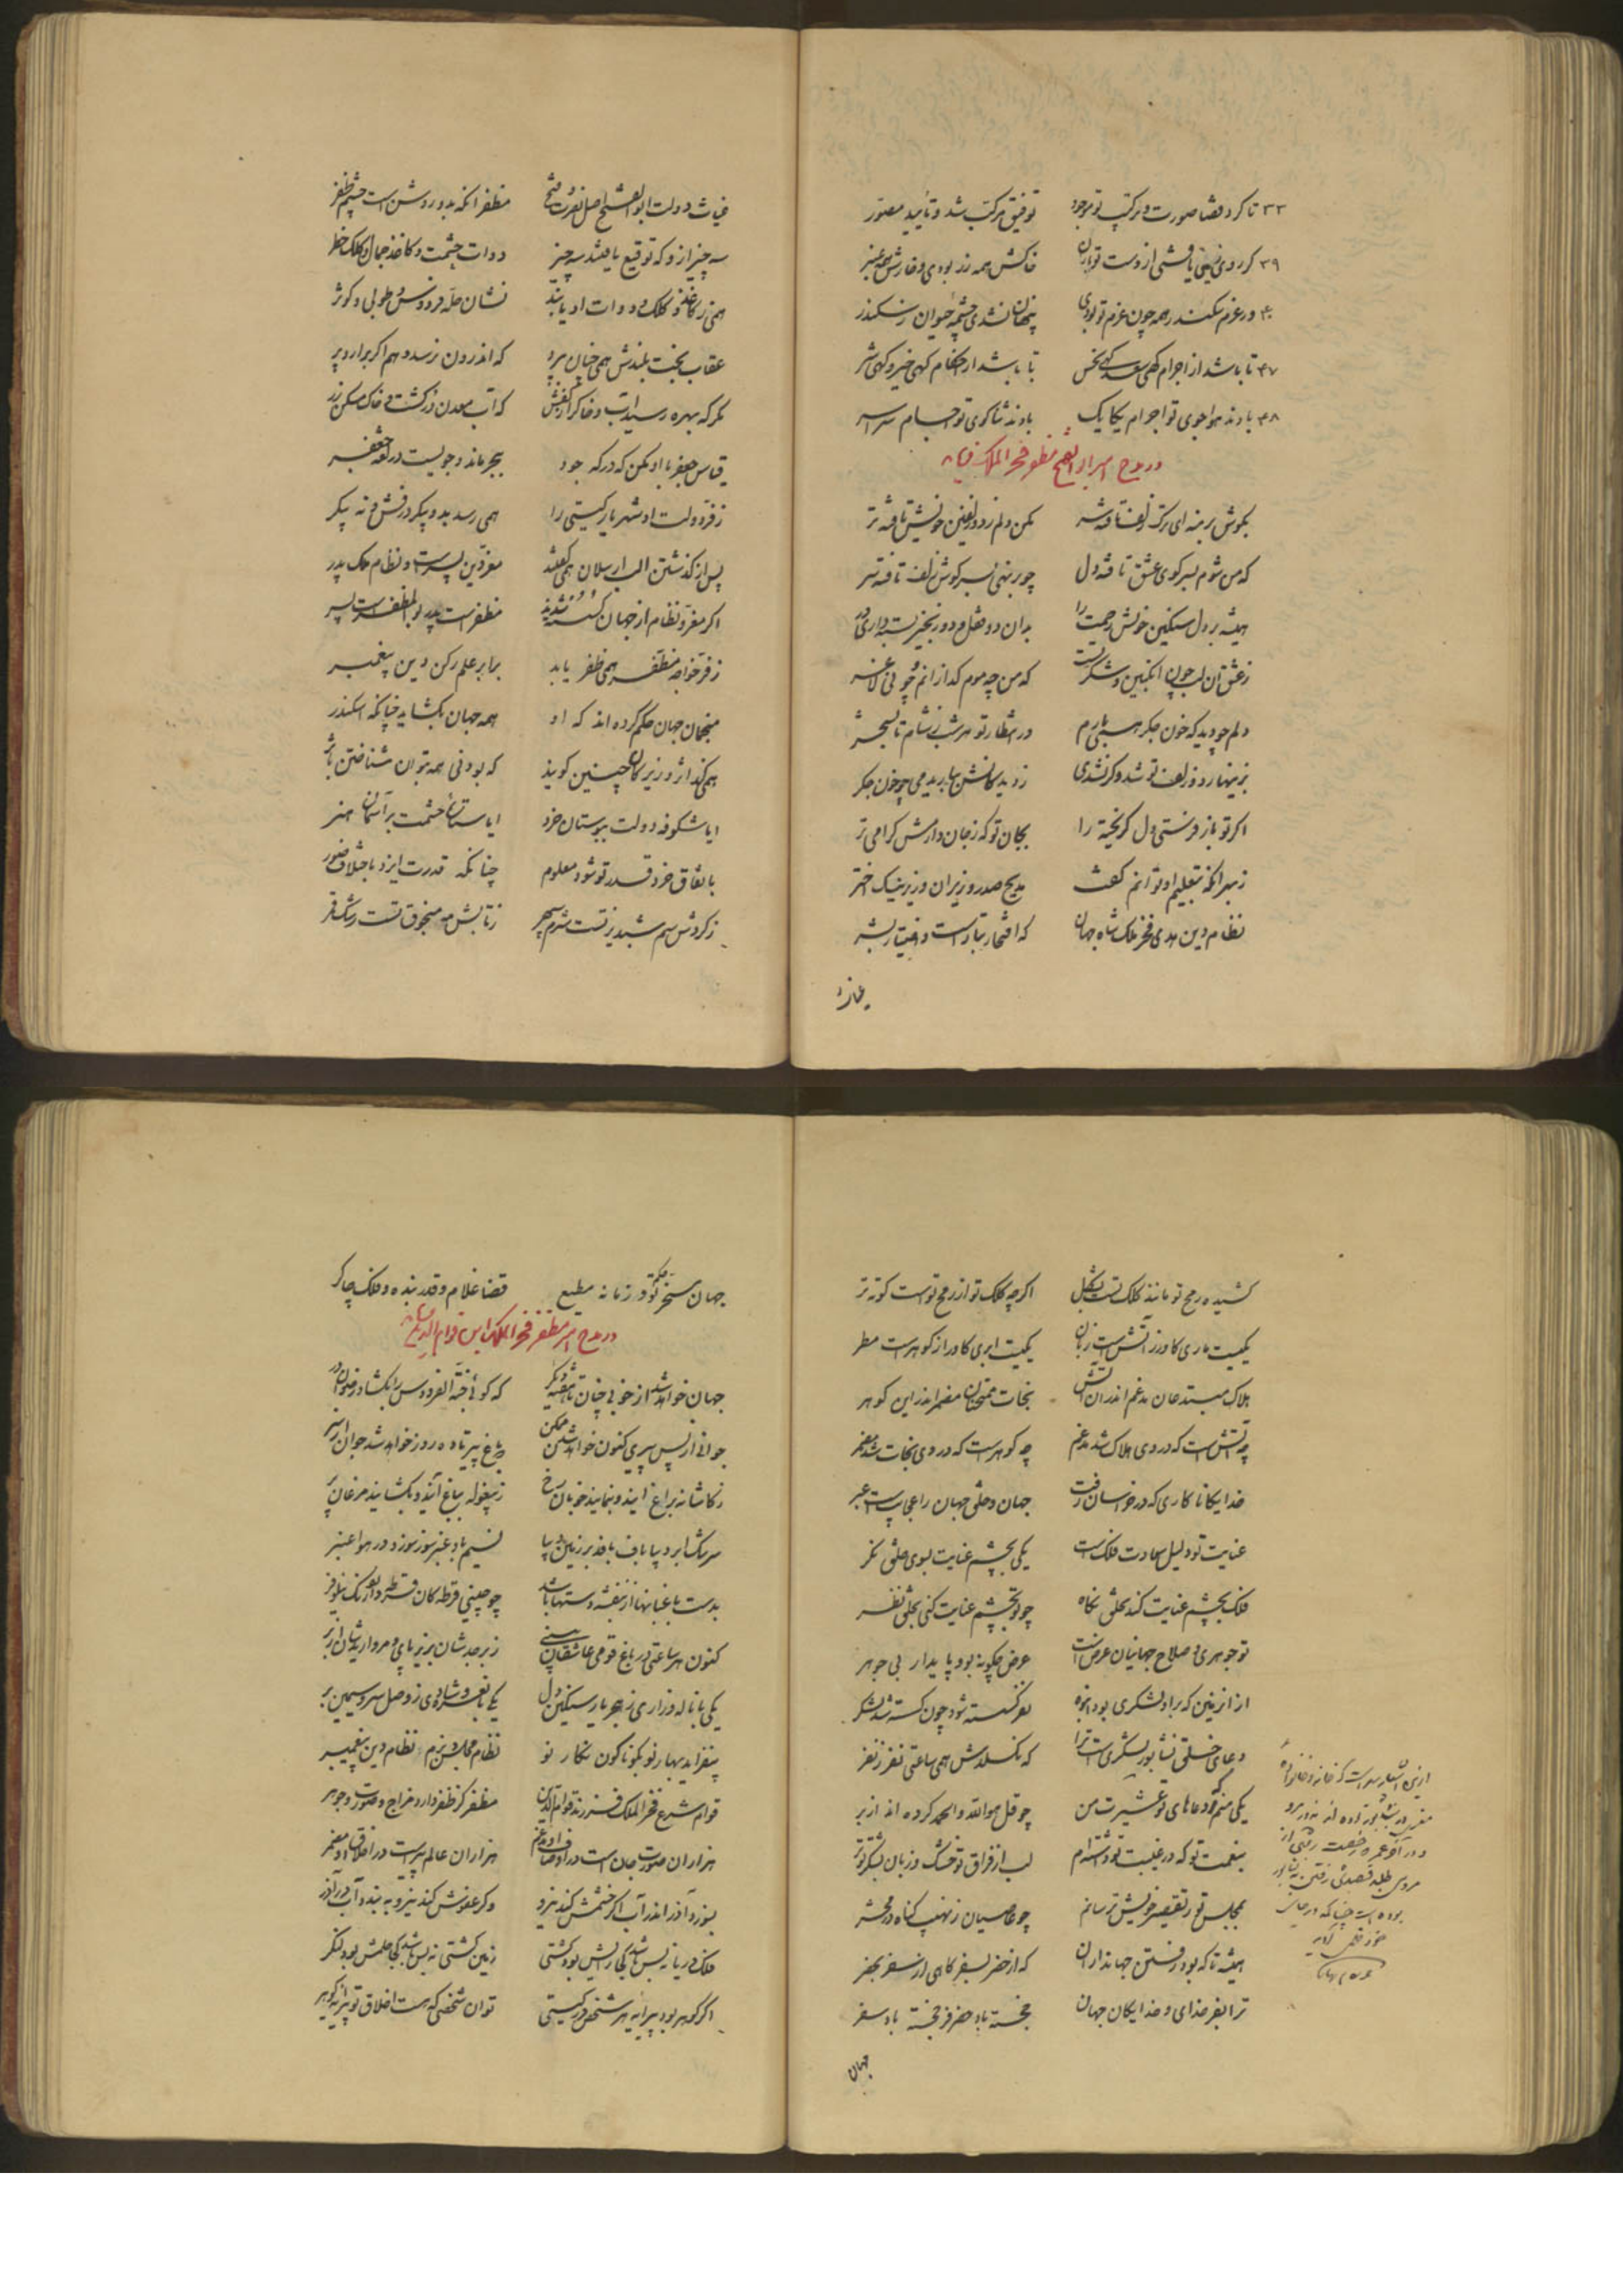 ۳۳ تا کرد قضا صورت و ترکیب تو موجود توفیق مرکب شد و تأیید مصور
۳۹ گر روی زمین یافتی از دست تو باران خاکش همه زر بودی و خارش همه عنبر
۴۰ ور عزم سکندر همه چون عزم تو بودی پنهان نشدی چشمه حیوان ز سکندر
۴۷ تا باشد از اجرام گهی سعد و گهی نحس تا باشد از احکام گهی خیر و گهی شر
۴۸ بادند هواجوی تو اجرام یکایک بادند ثناگوی تو اجسام سراسر
در مدح امیر ابوالفتح مظفر فخر الملک
بگوش برمنه ای ترک زلف تافته سر مکن دلم ز دو زلفین خویش تافته تر
که من شوم بسر کوی عشق تافته دل چو برنهی بسر گوش زلف تافته سر
همیشه بر دل سنگین خویش رحمت را بدان دو قفل و دو زنجیر بسته داری در
ز عشق آن لب چون انگبین و شکر تست که من چو موم گدازانم و چو نی لاغر
دلم چو دید که خون جگر همی بارم در انتظار تو هر شب ز شام تا بسحر
بزینهار دو زلف تو شد وگر نشدی ز دیدگانش بباریدمی چو خون جگر
اگر تو باز فرستی دل گریخته را بجان تو که ز جان دارمش گرامی تر
ز بهر آنکه بتعلیم او توانم گفت مدیح صدر وزیران وزیر نیک اختر
نظام دین هدی فخر ملک شاه جهان که افتخار تبار است و اختیار بشر
غیاث دولت ابوالفتح اصل نصرت و فتح مظفر آنکه بدو روشن است چشم ظفر
سه چیز از او که توقیع یافتند سه چیز دوات حشمت و کاغذ جمال و کلک خطر
همی ز کاغذ و کلک و دوات او یابند نشان حله فردوس و طوبی و کوثر
عقاب بخت بلندش همی چنان پرد که اندرون نرسد وهم اگر برآرد پر
مگر که بهره رسید آب و خاک را ز کفش که آب معدن در گشت و خاک مسکن زر
قیاس جعفر با او مکن که در گه جود ببحر ماند و جویست در لغه جعفر
ز فر دولت او شهریار گیتی را همی رسد بدو پیکر درفش و نه پیکر
پس از گذشتن الب ارسلان همی گفتند معز دین پسرست و نظام ملک پدر
اگر معز و نظام از جهان گسسته شدند مظفر است پدر بوالمظفر است پسر
ز فر خواجه مظفر همی ظفر یابد برابر علم رکن دین پیغمبر
منجمان جهان حکم کرده اند که او همه جهان بگشاید چنانکه اسکندر
همی گذارد وزیرکان چنین گویند که بودنی همه بتوان شناختن باثر
ایا شکوفه دولت ببوستان خرد ایا ستاره حشمت بر آسمان هنر
باتفاق خرد قدر تو شود معلوم چنانکه قدرت ایزد باختلاف صور
ز گردش سم شبدیز تست شرم سپهر ز تابش مه منجوق تست رشک قمر
کشیده رمح تو مانند کلک تست بشکل اگرچه کلک تو از رمح تو است کوته تر
یکیست ماری کاورا ز آتش است زبان یکیست ابری کاورا ز گوهر است مطر
هلاک مبتدعان مدغم اندر آن آتش نجات ممتحنان مضمر اندر این گوهر
چه آتش است که در وی هلاک شد مدغم چه گوهر است که در وی نجات شد مضمر
خدایگانا کاری که در خراسان رفت جهان و خلق جهان را عجایب است و عبر
عنایت تو دلیل سعادت فلک است یکی بچشم عنایت بسوی خلق نگر
فلک بچشم عنایت کند بخلق نگاه چو تو بچشم عنایت کنی بخلق نظر
تو جوهری و صلاح جهانیان عرض است عرض چگونه بود پایدار بی جوهر
دعای خلق نشابور لشکری است ترا که نگسلدش همی ساعتی نفر ز نفر
یکی منم که دعاهای تو عشیرت من چو قل هو الله و الحمد کرده اند از بر
بنعمت تو که در غیبت تو داشته ام لب از فراق تو خشک و زبان بشکر تو تر
بمجلس تو ز تقصیر خویش ترسانم چو عاصیان ز نهیب گناه در محشر
همیشه تا که بود رفتن جهانداران گه از حضر بسفر گاهی از سفر بحضر
ترا بفر خدای و خدایگان جهان خجسته باد حضر فرخجسته باد سفر
جهان
جهان مسخر حکم تو و زمانه مطیع قضا غلام و قدر بنده و فلک چاکر
در مدح امیر مظفر فخر الملک ابن قوام الدین
جهان خواهد شد از خوبی چنان تا هفته دیگر که گوئی جنة الفردوس را بگشاد رضوان در
جوانی از پس پیری کنون خواهد شدن ممکن که باغ پیر تا ده روز خواهد شد جوان از سر
ز کاشانه بباغ آیند و بنمایند خوبان رخ ز بیغوله بباغ آیند و بگشایند مرغان پر
سرشک ابر دیباباف بافد بر زمین دیبا نسیم باد عنبرسوز سوزد در هوا عنبر
کنون هر ساعتی در باغ قومی عاشقان بینی زبرجدشان بزیر پای و مرواریدشان از بر
یکی با ناله و زاری ز هجر یار سنگین دل یکی با نغمه و شادی ز وصل سرو سیمین بر
بیفزاید بهار نو بگوناگون نگار نو نظام مجلس و بزم نظام دین پیغمبر
قوام شرع فخر الملک فرزند قوام الدین مظفر کز ظفر دارد مزاج و صورت و جوهر
هزاران صورت جان است در اوصاف او مدغم هزاران عالم سر است در اخلاق او مضمر
بسوزد آذر اندر آب اگر خشمش کند نیرو وگر عفوش کند نیرو ببندد آب در آذر
فلک دریا نه بس باشد کجا رایش بود کشتی زمین کشتی نه بس باشد کجا حلمش بود لنگر
اگر گوهر بود پیرایه هر شخص در گیتی توآن شخصی که هست اخلاق تو پیرایه گوهر